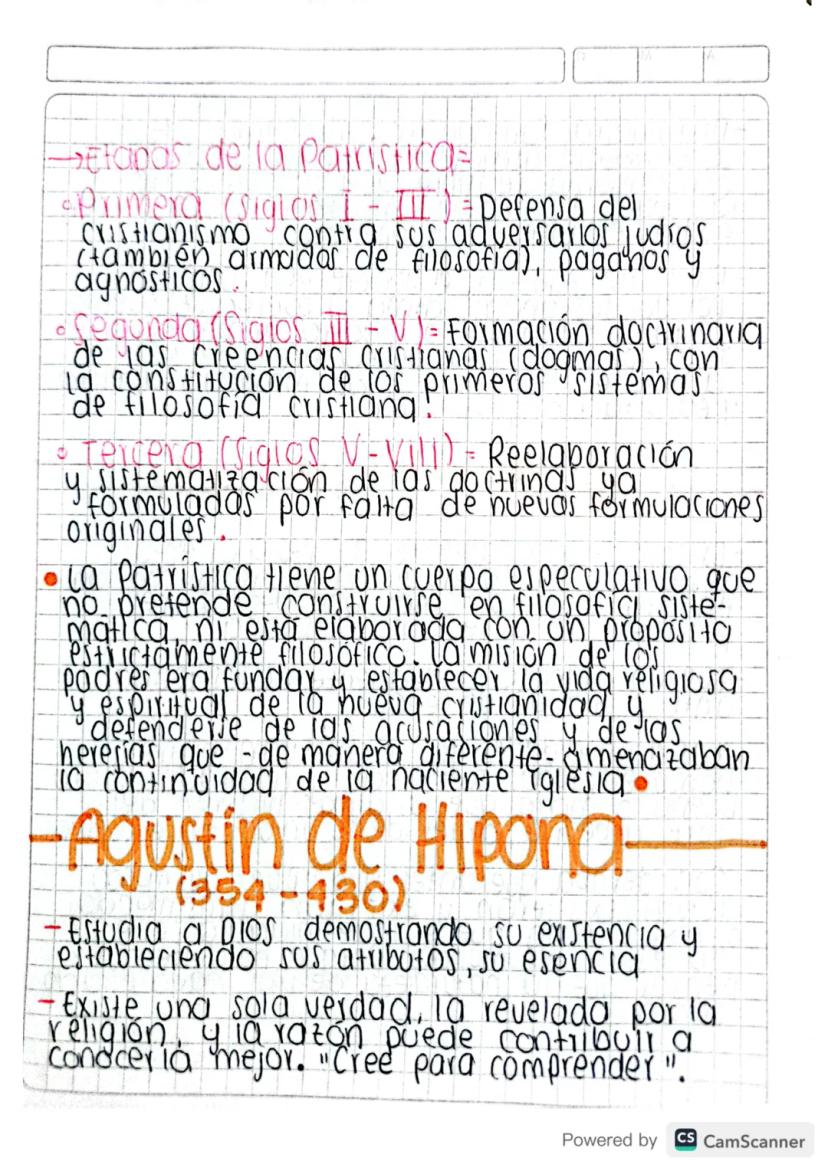 →Etapas de la Patrística=
Primera (Siglos I - III) = Defensa del
cristianismo contra sus adversarios judíos
(también armados de filosofía), paganos y
agnósticos.
Segunda (Siglos III - V) = Formación doctrinaria
de las creencias cristianas (dogmas), con
la constitución de los primeros sistemas
de filosofía cristiana.
Tercera (Siglos V-VIII) = Reelaboración
y sistematización de las doctrinas ya
formuladas por falta de nuevas formulaciones
originales.
• La Patrística tiene un cuerpo especulativo que
no pretende construirse en filosofía siste-
mática, ni está elaborada con un propósito
estrictamente filosófico. La misión de los
padres era fundar y establecer la vida religiosa
y espiritual de la nueva cristianidad y
defenderse de las acusaciones y de las
herejías que -de manera diferente- amenazaban
la continuidad de la naciente iglesia •
-Agustín de Hipona-
(354-430)
- Estudia a Dios demostrando su existencia y
estableciendo sus atributos, su esencia
- Existe una sola verdad, la revelada por la
religión, y la razón puede contribuir a
conocerla mejor. "Cree para comprender".
Powered by CS CamScanner